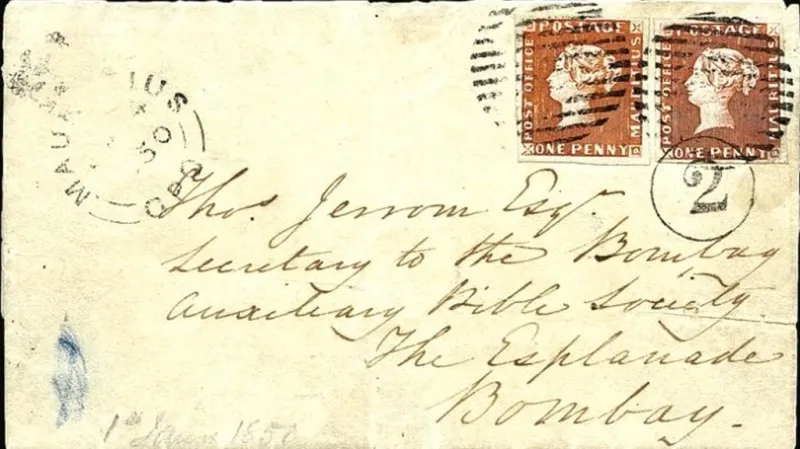 POST OFFICE POSTAGE MAURITIUS ONE PENNY
POST OFFICE POSTAGE MAURITIUS ONE PENNY
MAURITIUS
GPO
2
Thos. Jerrom Esqr.
Secretary to the Bombay
Auxiliary Bible Society.
The Esplanade
Bombay.
1850